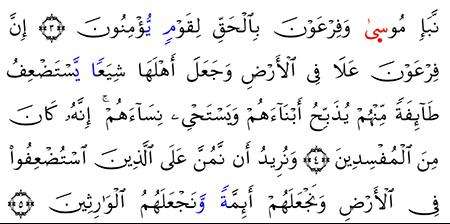 نَّبَإِ مُوسَىٰ وَفِرْعَوْنَ بِالْحَقِّ لِقَوْمٍ يُؤْمِنُونَ ﴿٣﴾ إِنَّ
فِرْعَوْنَ عَلَا فِى الْأَرْضِ وَجَعَلَ أَهْلَهَا شِيَعًا يَسْتَضْعِفُ
طَآئِفَةً مِّنْهُمْ يُذَبِّحُ أَبْنَآءَهُمْ وَيَسْتَحْىِۦ نِسَآءَهُمْ ۚ إِنَّهُۥ كَانَ
مِنَ الْمُفْسِدِينَ ﴿٤﴾ وَنُرِيدُ أَن نَّمُنَّ عَلَى الَّذِينَ اسْتُضْعِفُوا۟
فِى الْأَرْضِ وَنَجْعَلَهُمْ أَئِمَّةً وَنَجْعَلَهُمُ الْوَارِثِينَ ﴿٥﴾